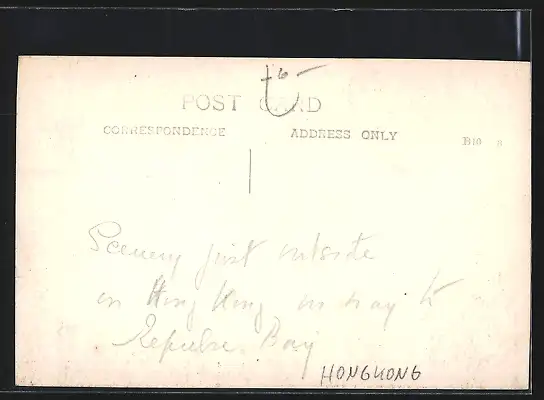 6-
POST CARD
CORRESPONDENCE ADDRESS ONLY
B10
Scenery just outside
in Hong Kong on way to
Repulse Bay
HONGKONG